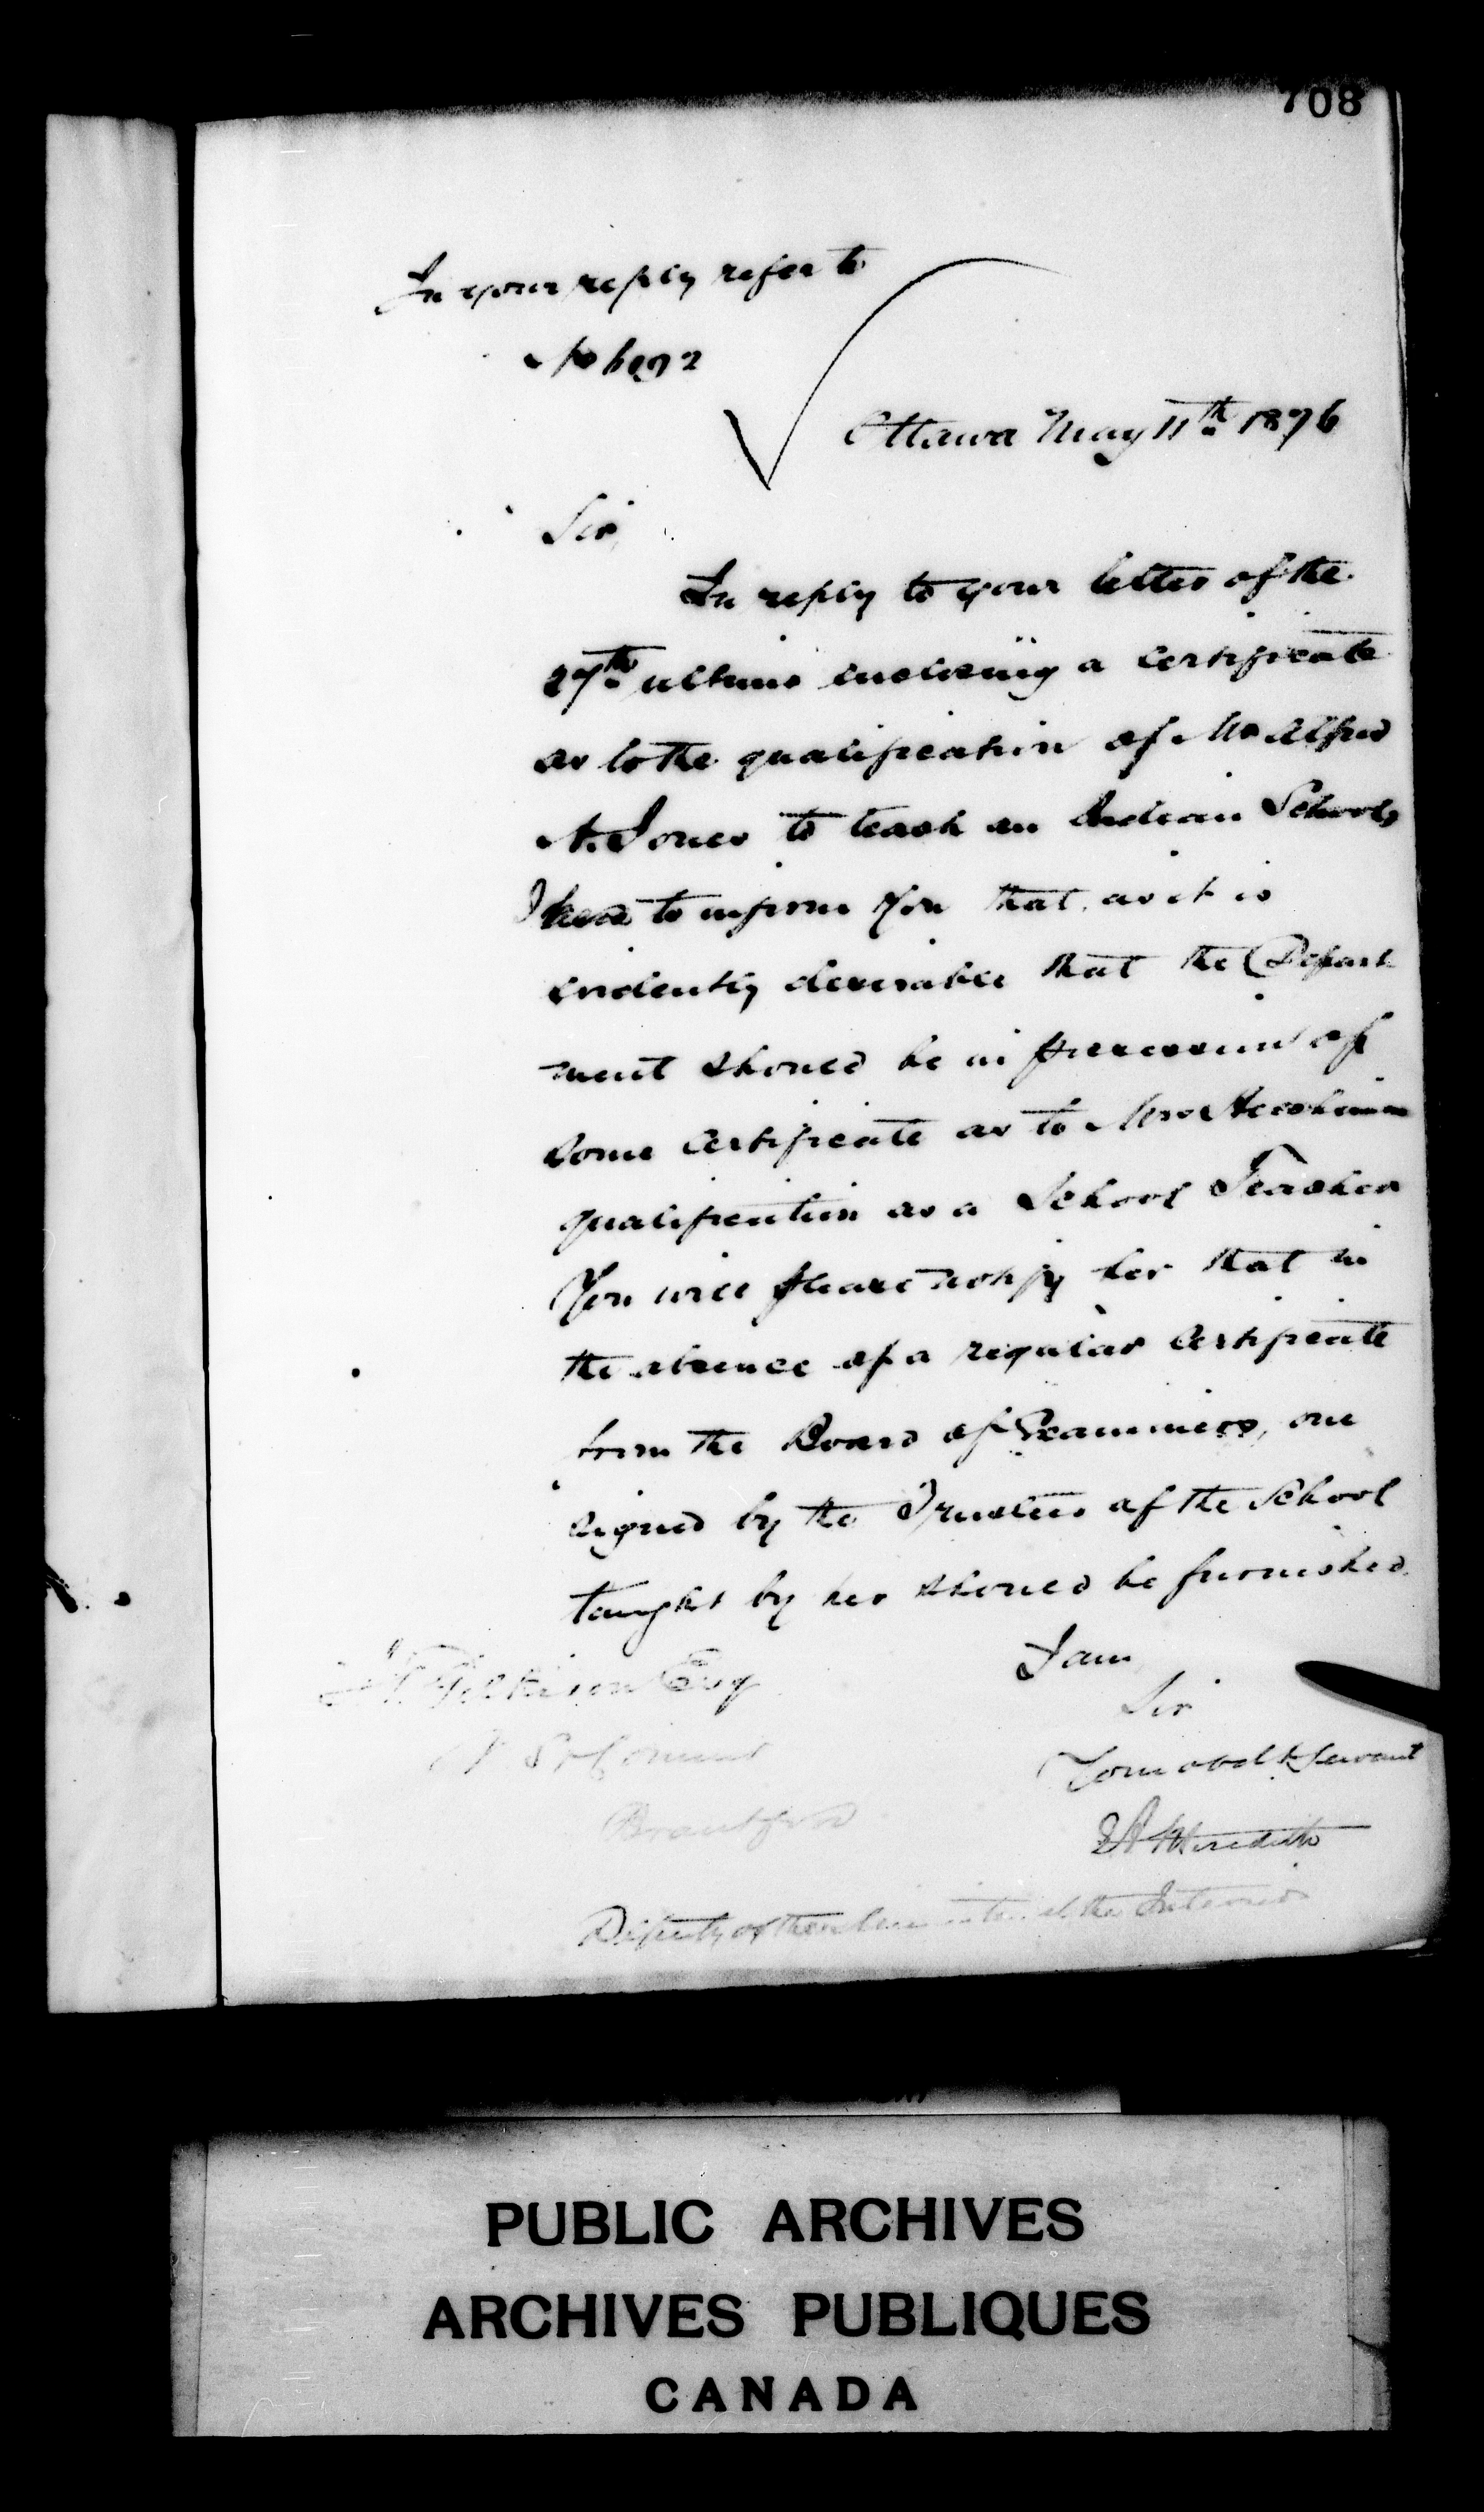 708
In your reply refer to
No 6972
Ottawa May 11th 1876
Sir,
In reply to your letter of the
27th ultimo enclosing a certificate
as to the qualification of Mr Alfred
A. Jones to teach an Indian School,
I have to inform you that, as it is
evidently desirable that the Depart
ment should be in possession of
some certificate as to Mrs
qualification as a School Teacher
You will please notify her that in
the absence of a regular certificate
from the Board of Examiners, one
signed by the Trustees of the School
taught by her should be furnished.
I am
Sir
Your obedt Servant
EA Meredith
J.T. Gilkison Esq
Brantford
Deputy of the Minister of the Interior
PUBLIC ARCHIVES
ARCHIVES PUBLIQUES
CANADA